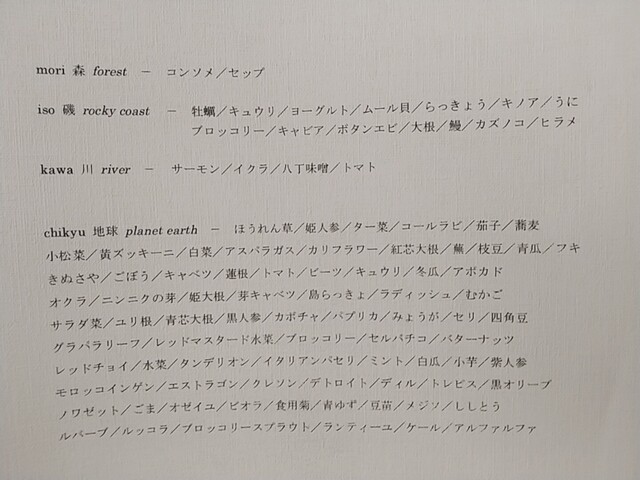 mori 森 forest － コンソメ／セップ
iso 磯 rocky coast － 牡蠣／キュウリ／ヨーグルト／ムール貝／らっきょう／キノア／うに
ブロッコリー／キャビア／ボタンエビ／大根／鰻／カズノコ／ヒラメ
kawa 川 river － サーモン／イクラ／八丁味噌／トマト
chikyu 地球 planet earth － ほうれん草／姫人参／ター菜／コールラビ／茄子／蕎麦
小松菜／黄ズッキーニ／白菜／アスパラガス／カリフラワー／紅芯大根／蕪／枝豆／青瓜／フキ
きぬさや／ごぼう／キャベツ／蓮根／トマト／ビーツ／キュウリ／冬瓜／アボカド
オクラ／ニンニクの芽／姫大根／芽キャベツ／島らっきょ／ラディッシュ／むかご
サラダ菜／ユリ根／青芯大根／黒人参／カボチャ／パプリカ／みょうが／セリ／四角豆
グラパラリーフ／レッドマスタード水菜／ブロッコリー／セルバチコ／バターナッツ
レッドチョイ／水菜／タンデリオン／イタリアンパセリ／ミント／白瓜／小芋／紫人参
モロッコインゲン／エストラゴン／クレソン／デトロイト／ディル／トレビス／黒オリーブ
ノワゼット／ごま／オゼイユ／ビオラ／食用菊／青ゆず／豆苗／メジソ／ししとう
ルバーブ／ルッコラ／ブロッコリースプラウト／ランティーユ／ケール／アルファルファ